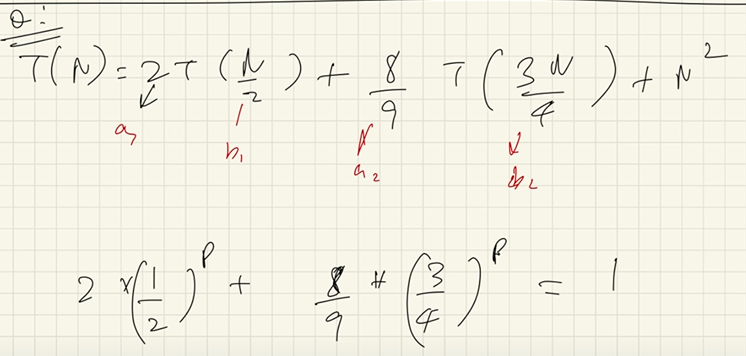 Q:
T(N) = 2 T (N/2) + 8/9 T (3N/4) + N²
a₁ b₁ a₂ b₂
2 × (1/2)^P + 8/9 * (3/4)^P = 1